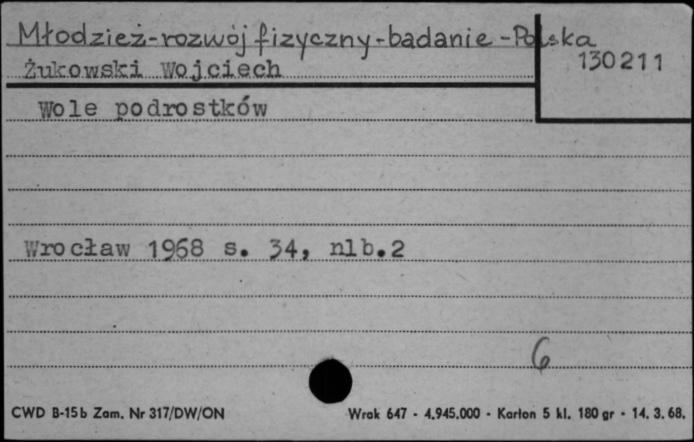 Młodzież-rozwój fizyczny-badanie-Polska
130211
Żukowski Wojciech
Wole podrostków
Wrocław 1968 s. 34, nlb.2
6
CWD B-15b Zam. Nr 317/DW/ON
Wrak 647 - 4.945.000 - Karton 5 kl. 180 gr - 14. 3. 68.